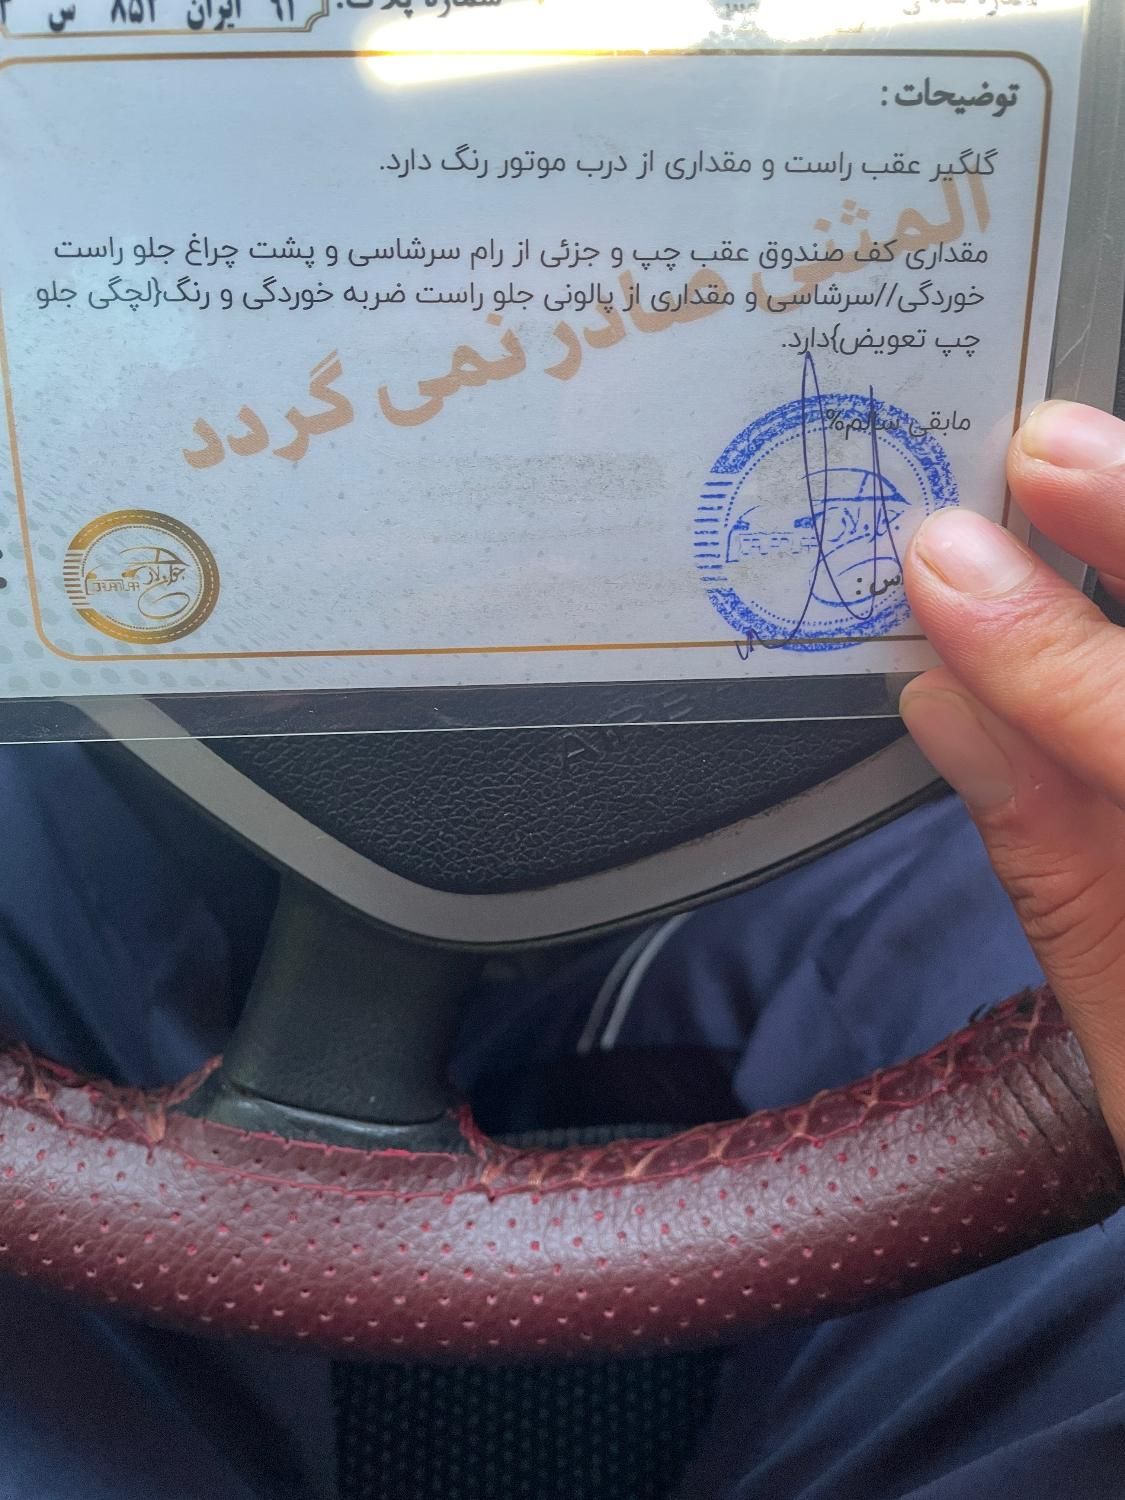 شماره پلاک:
ایران
س
توضیحات:
گلگیر عقب راست و مقداری از درب موتور رنگ دارد.
مقداری کف صندوق عقب چپ و جزئی از رام سرشاسی و پشت چراغ جلو راست
خوردگی//سرشاسی و مقداری از پالونی جلو راست ضربه خوردگی و رنگ{لچگی جلو
چپ تعویض}دارد.
مابقی سالم%
المثنی صادر نمی گردد